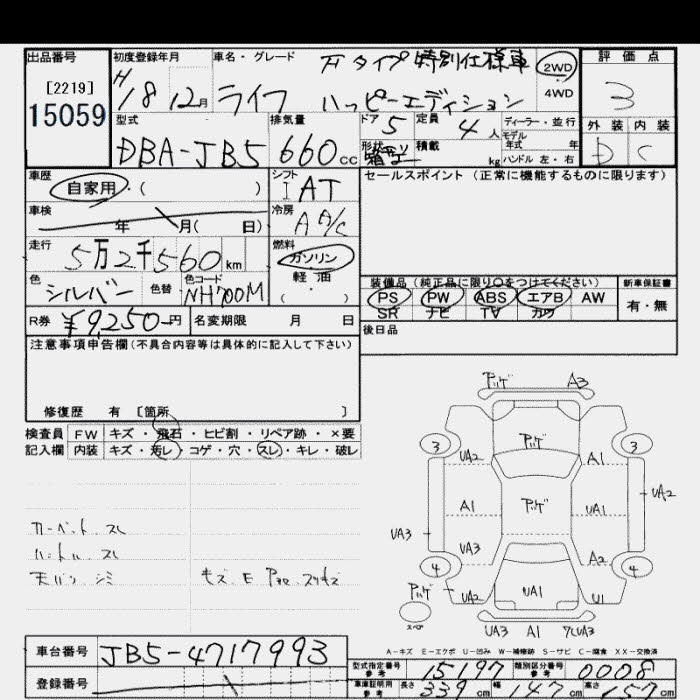 出品番号
[2219]
15059
初度登録年月
H
18 12月
車名・グレード
F タイプ 特別仕様車
ライフ ハッピーエディション
2WD
4WD
評価点
3
外装 内装
D C
型式
DBA-JB5
排気量
660cc
ドア 5
定員 4人
ディーラー・並行
モデル
年式 年
形状 箱型
積載 kg
ハンドル 左・右
車歴
自家用・( )
シフト
I AT
セールスポイント (正常に機能するものに限ります)
車検
年 月( 日)
冷房
A A/C
走行
5万2千560km
燃料
ガソリン
軽・油
・( )
色
シルバー
色替
色コード
NH700M
装備品 (純正品に限り○をつけてください)
PS PW ABS エアB AW
SR ナビ TV カワ
新車保証書
有・無
R券 ¥9,250-円
名変期限 月 日
後日品
注意事項申告欄(不具合内容等は具体的に記入して下さい)
修復歴 有 [箇所 ]
検査員 FW キズ・飛石・ヒビ割・リペア跡・×要
記入欄 内装 キズ・汚レ・コゲ・穴・スレ・キレ・破レ
カーペット スレ
ハンドル スレ
天バリ シミ
キズ E
アッゲ A3
3 アッゲ 3
UA2 A1
UA2
A1 アッゲ UA1
UA3
UA3 A2
4 4
アッゲ
UA2 UA1 U1
スペア
UA3 A1
A-キズ E-エクボ U-凹み W-補修跡 S-サビ C-腐食 XX-交換済
車台番号 JB5-4717993
登録番号
型式指定番号
参考
15197
類別区分番号
参考
0008
車庫証明用
参考
長さ 339cm 幅 147cm 高さ 157cm